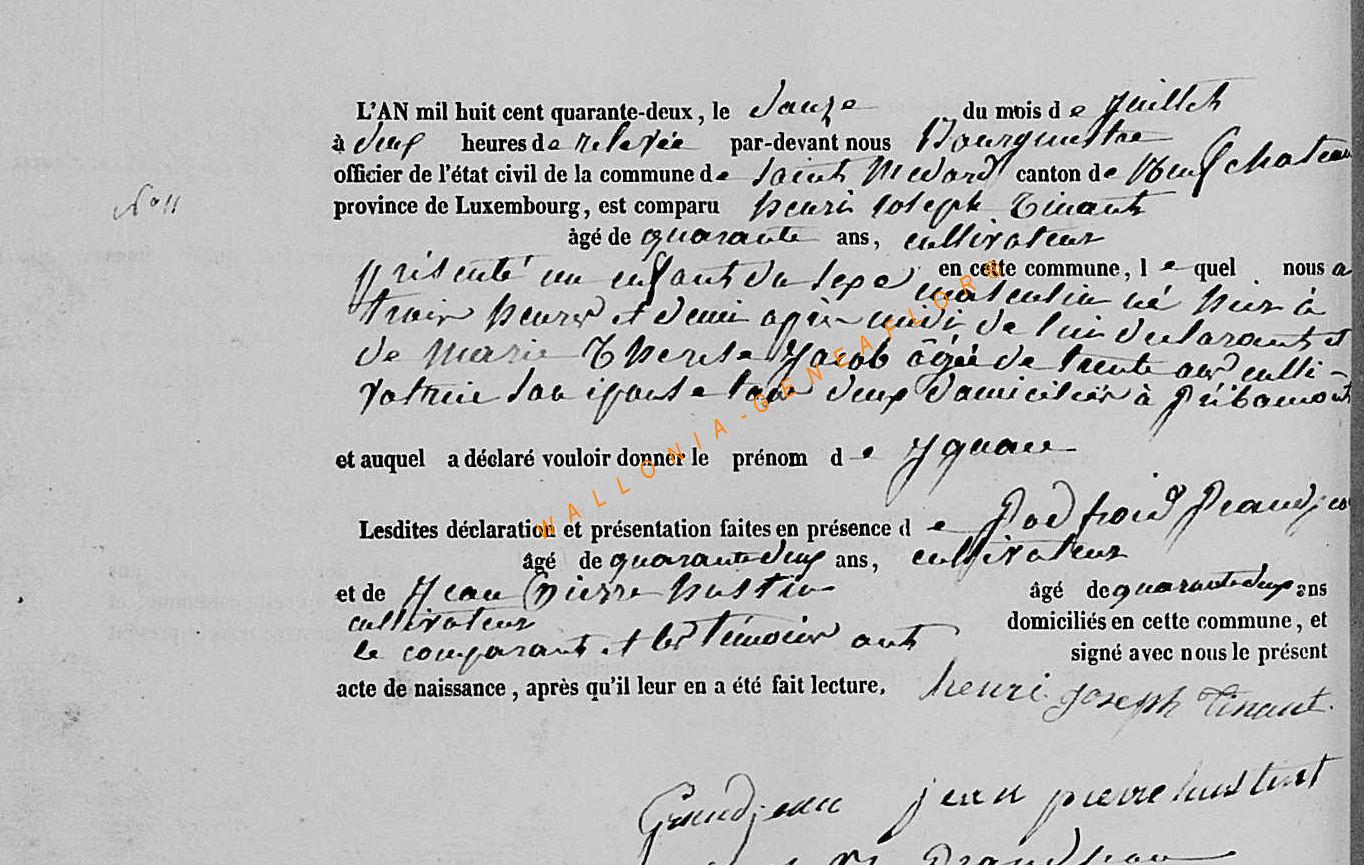 L'AN mil huit cent quarante-deux, le douze du mois de juillet
à deux heures de relevée par-devant nous Bourgmestre
officier de l'état civil de la commune de Saint Medard canton de Neufchateau
N° 11
province de Luxembourg, est comparu henri joseph Tinant
âgé de quarante ans, cultivateur
en cette commune, lequel nous a
présenté un enfant du sexe masculin né hier à
trois heures et demi après midi de lui declarant et
de Marie Therese Jacob âgée de trente ans culti-
vatrice son epouse tous deux domiciliés à Gribomont
et auquel a déclaré vouloir donner le prénom de
Lesdites déclaration et présentation faites en présence de Godfroid Grandjean
âgé de quarante deux ans, cultivateur
et de Jean Pierre hustin âgé de quarante deux ans
cultivateur domiciliés en cette commune, et
le comparant et les témoins ont signé avec nous le présent
acte de naissance, après qu'il leur en a été fait lecture.
henri joseph Tinant.
Grandjean jean pierre hustint
Grandjean
WALLONIA-GENEAFLORE